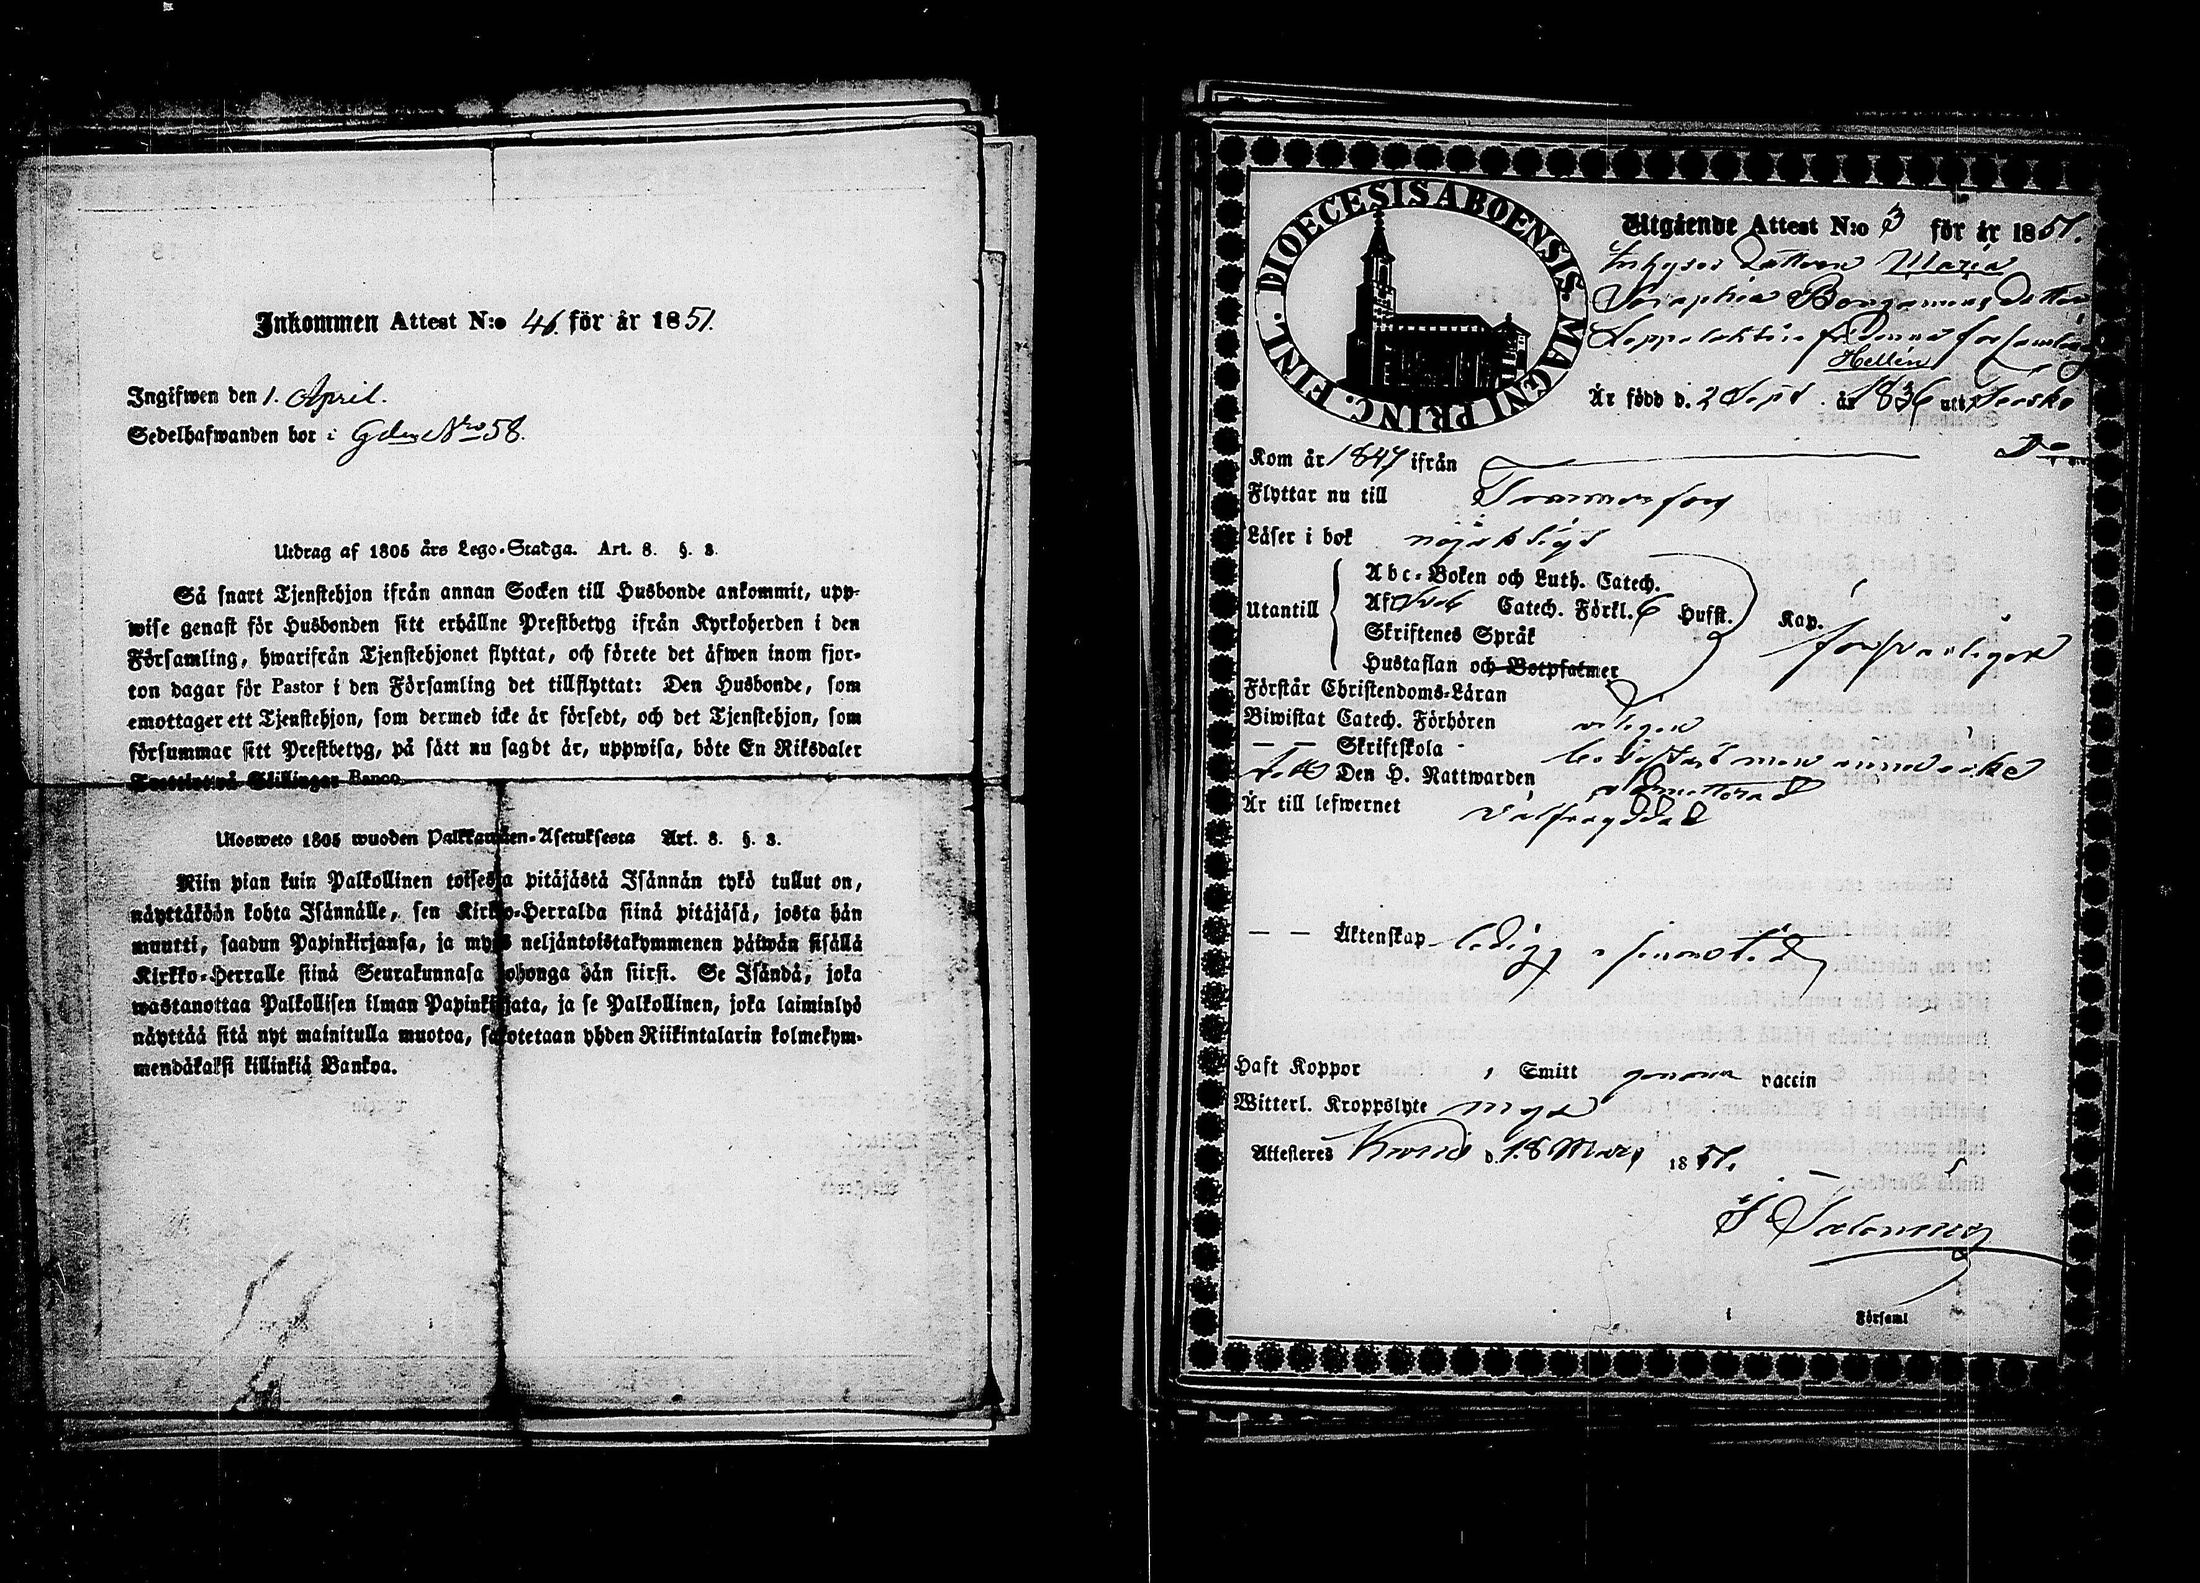 Inkommen Attest N:o 46. för år 1851.
Ingifwen den 1. April.
Sedelhafwanden bor i Gden Nro 58.
Utdrag af 1805 års Lego-Stadga. Art. 8. §. 3.
Så snart Tjenstehjon ifrån annan Socken till Husbonde ankommit, upp-
wise genast för Husbonden sitt erhållne Prestbetyg ifrån Kyrkoherden i den
Församling, hwarifrån Tjenstehjonet flyttat, och förete det äfwen inom fjor-
ton dagar för Pastor i den Församling det tillflyttat: Den Husbonde, som
emottager ett Tjenstehjon, som dermed icke är försedt, och det Tjenstehjon, som
försummar sitt Prestbetyg, på sätt nu sagdt är, uppwisa, böte En Riksdaler
Trettiotvå Skillingar Banco.
Ulosweto 1805 wuoden Palkkawäen-Asetuksesta Art. 8. §. 3.
Niin pian kuin Palkollinen toisesta pitäjästä Isännän tykö tullut on,
näyttäköön kohta Isännälle, sen Kirkko-Herralda siinä pitäjäsä, josta hän
muutti, saadun Papinkirjansa, ja myös neljäntoistakymmenen päiwän sisällä
Kirkko-Herralle siinä Seurakunnasa johonga hän siirsi. Se Isändä, joka
wastanottaa Palkollisen ilman Papinkirjata, ja se Palkollinen, joka laiminlyö
näyttää sitä nyt mainitulla muotoa, sakotetaan yhden Riikintalarin kolmekym-
mendäkaksi killinkiä Bankoa.
DIOECESIS ABOENSIS. MAGNI PRINC. FINL.
Utgående Attest N:o 3 för år 1851.
Inhyses Dottren Maria
Seraphia Benjaminsdotter
denna församling
Hellén
Är född d. 2 Sept. år 1836 uti
Do
Kom år 1847 ifrån
Flyttar nu till Tammerfors
Läser i bok nöjaktigt
Utantill
Abc-Boken och Luth. Catech.
Af Sveb Catech. Förkl. 6 Hufst.
Skriftenes Språk Kap.
Hustaflan och Botpsalmer
försvarligen
Förstår Christendoms-Läran
Biwistat Catech. Förhören
— — Skriftskola bevistat men ännu icke
Den H. Nattwarden admitterad
Är till lefwernet välfrägdad
— — Äktenskap ledig
Haft Koppor , Smitt genom vaccin
Witterl. Kroppslyte inga
Attesteres d. 18 Mars 1851.
Församl